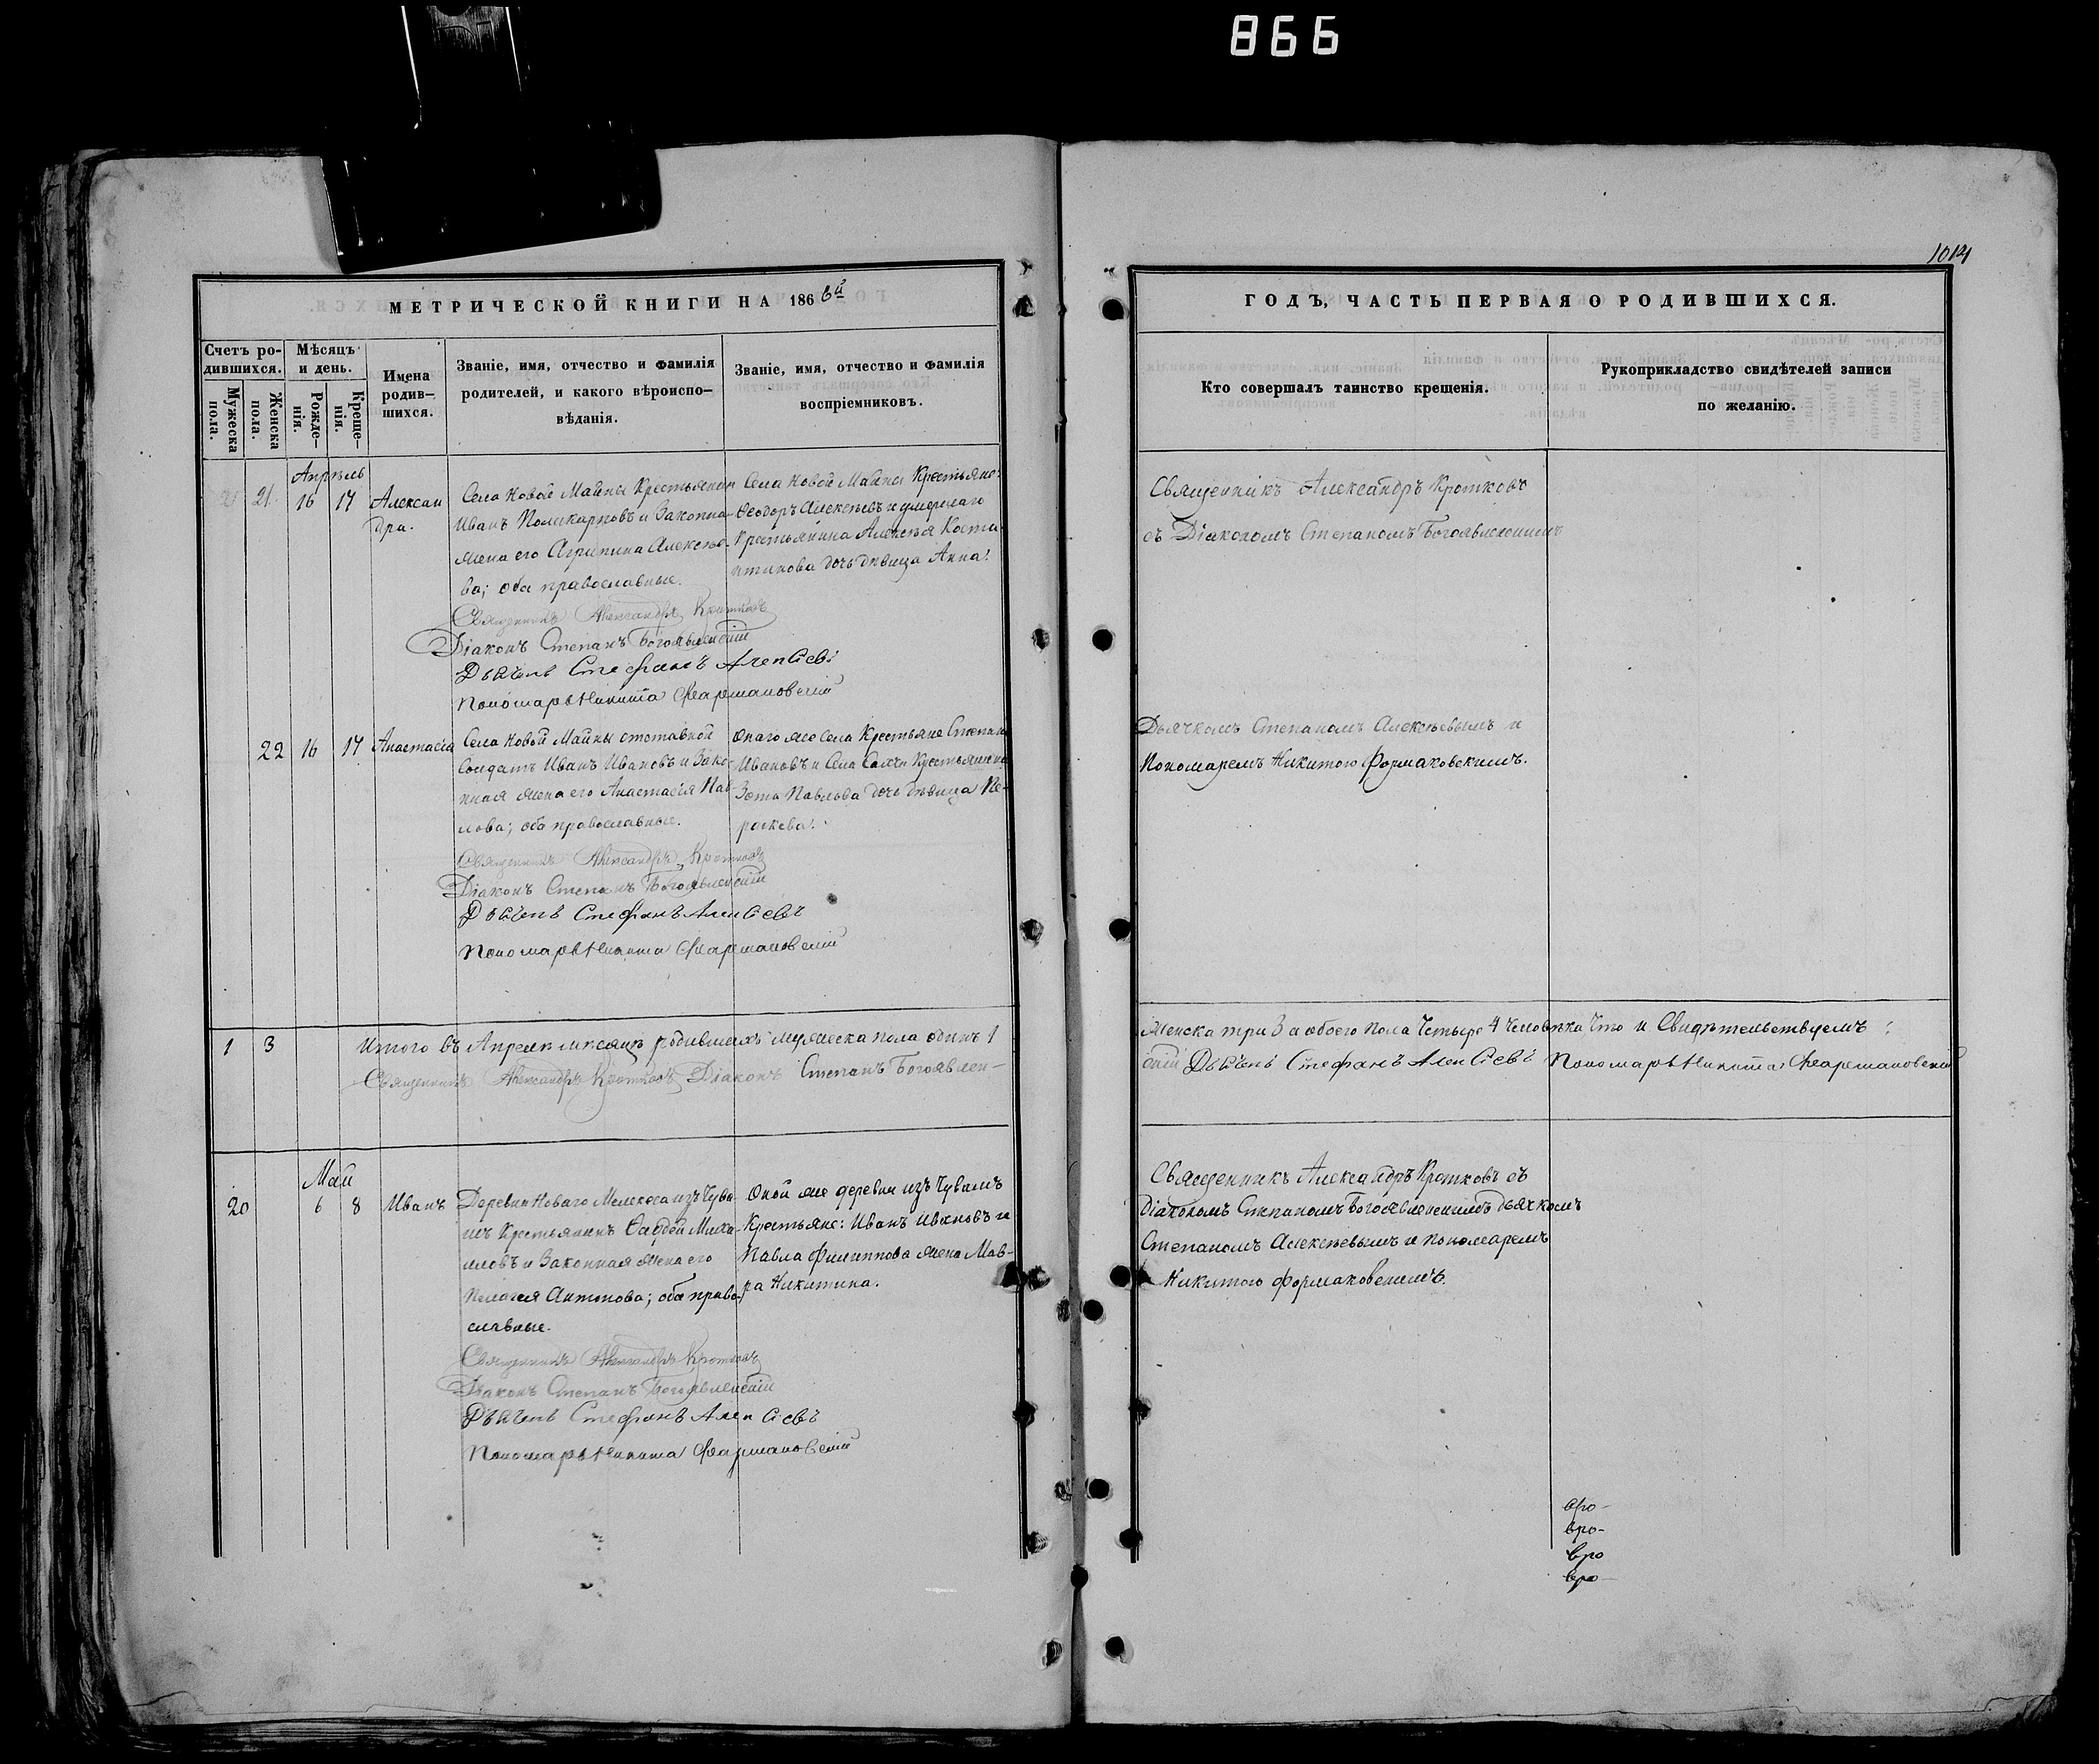 866
1014
МЕТРИЧЕСКОЙ КНИГИ НА 1866й
Счетъ ро-
дившихся.
Мѣсяцъ
и день.
Имена
родив-
шихся.
Званіе, имя, отчество и фамилія
родителей, и какого вѣроиспо-
вѣданія.
Званіе, имя, отчество и фамилія
воспріемниковъ.
Мужеска
пола.
Женска
пола.
Рожде-
нія.
Креще-
нія.
Апрѣль
21 16 17 Алексан
дра.
Села Новой Майны Крестьянин
Иванъ Поликарповъ и Законна
жена его Агрипина Алексѣе-
ва; оба православные.
Села Новой Майны Крестьяне:
Ѳеодоръ Алексѣевъ и умершаго
Крестьянина Алексѣя Конста-
нтинова дочь дѣвица Анна.
Священникъ Александръ Кротковъ
Діаконъ Степанъ Богоявленскій
Дьячекъ Стефанъ Алексіевъ
Пономарь Никита Фармаковскій
22 16 17 Анастасія
Села Новой Майны отставной
Солдатъ Иванъ Ивановъ и Зако-
нная жена его Анастасія Пав-
лова; оба православные.
Онаго же села Крестьяне Степанъ
Ивановъ и Села Крестьянина
Зота Павлова дочь дѣвица Па-
раскева.
Священникъ Александръ Кротковъ
Діаконъ Степанъ Богоявленскій
Дьячекъ Стефанъ Алексіевъ
Пономарь Никита Фармаковскій
1 3 Итого въ Апрелѣ мѣсяцѣ родившихъ мужеска пола одинъ 1
Священникъ Александръ Кротковъ Діаконъ Степанъ Богоявлен-
Май
20 6 8 Иванъ
Деревни Новаго Мелекеса изъ Чува-
шъ Крестьянинъ Ѳаддей Миха-
иловъ и Законная жена его
Пелагея Антонова; оба право-
славные.
Оной же деревни изъ Чувашъ
Крестьяне: Иванъ Ивановъ и
Павла Филиппова жена Мав-
ра Никитина.
Священникъ Александръ Кротковъ
Діаконъ Степанъ Богоявленскій
Дьячекъ Стефанъ Алексіевъ
Пономарь Никита Фармаковскій
ГОДЪ, ЧАСТЬ ПЕРВАЯ О РОДИВШИХСЯ.
Кто совершалъ таинство крещенія.
Рукоприкладство свидѣтелей записи
по желанію.
Священникъ Александръ Кротковъ
съ Діакономъ Степаномъ Богоявленскимъ
Дьячкомъ Степаномъ Алексѣевымъ и
Пономаремъ Никитою Формаковскимъ.
Женска три 3 а обоего пола Четыре 4 человѣка Что и Свидѣтельствуемъ:
скій Дьячекъ Стефанъ Алексіевъ Пономарь Никита Фармаковскій
Священникъ Александръ Кротковъ съ
Діакономъ Степаномъ Богоявленскимъ дьячкомъ
Степаномъ Алексѣевымъ и пономаремъ
Никитою Формаковскимъ.